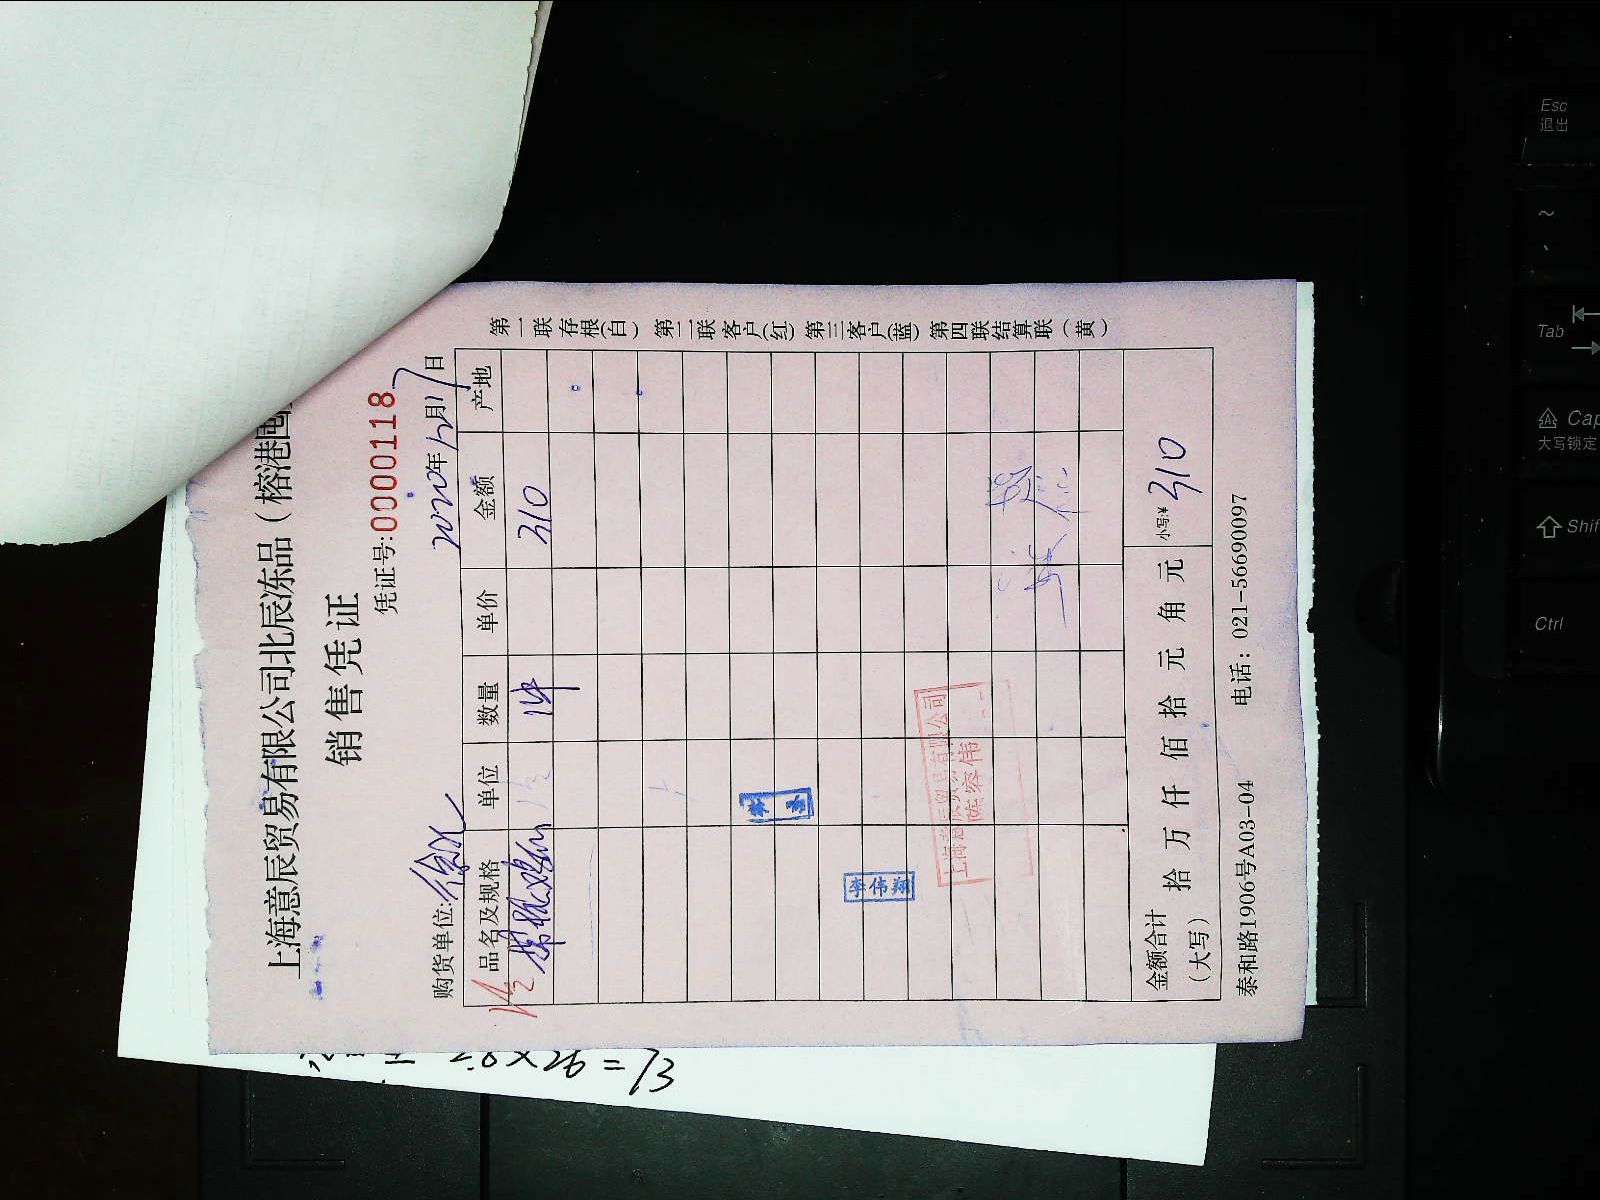 上海意辰贸易有限公司北辰冻品（榕港
销售凭证
凭证号:0000118
2020年12月17日
购货单位:徐
品名及规格 单位 数量 单价 金额 产地
1件 310
李伟翔
上海意辰贸易有限公司
陈容伟
金额合计
（大写） 拾 万 仟 佰 拾 元 角 元 小写:¥ 310
泰和路1906号A03-04 电话：021-56690097
第一联存根(白) 第二联客户(红) 第三客户(蓝) 第四联结算联（黄）
2.8×26=73
Esc
退出
~
Tab
Cap
大写锁定
Shif
Ctrl